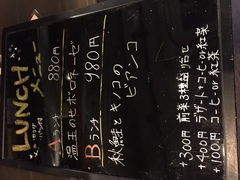 LUNCH
メニュー
Aランチ 880円
温玉のせボロネーゼ
Bランチ 980円
秋鮭とキノコの
ビアンコ
+300円 前菜3種盛り
+400円 デザート+コーヒーor紅茶
+100円 コーヒーor紅茶